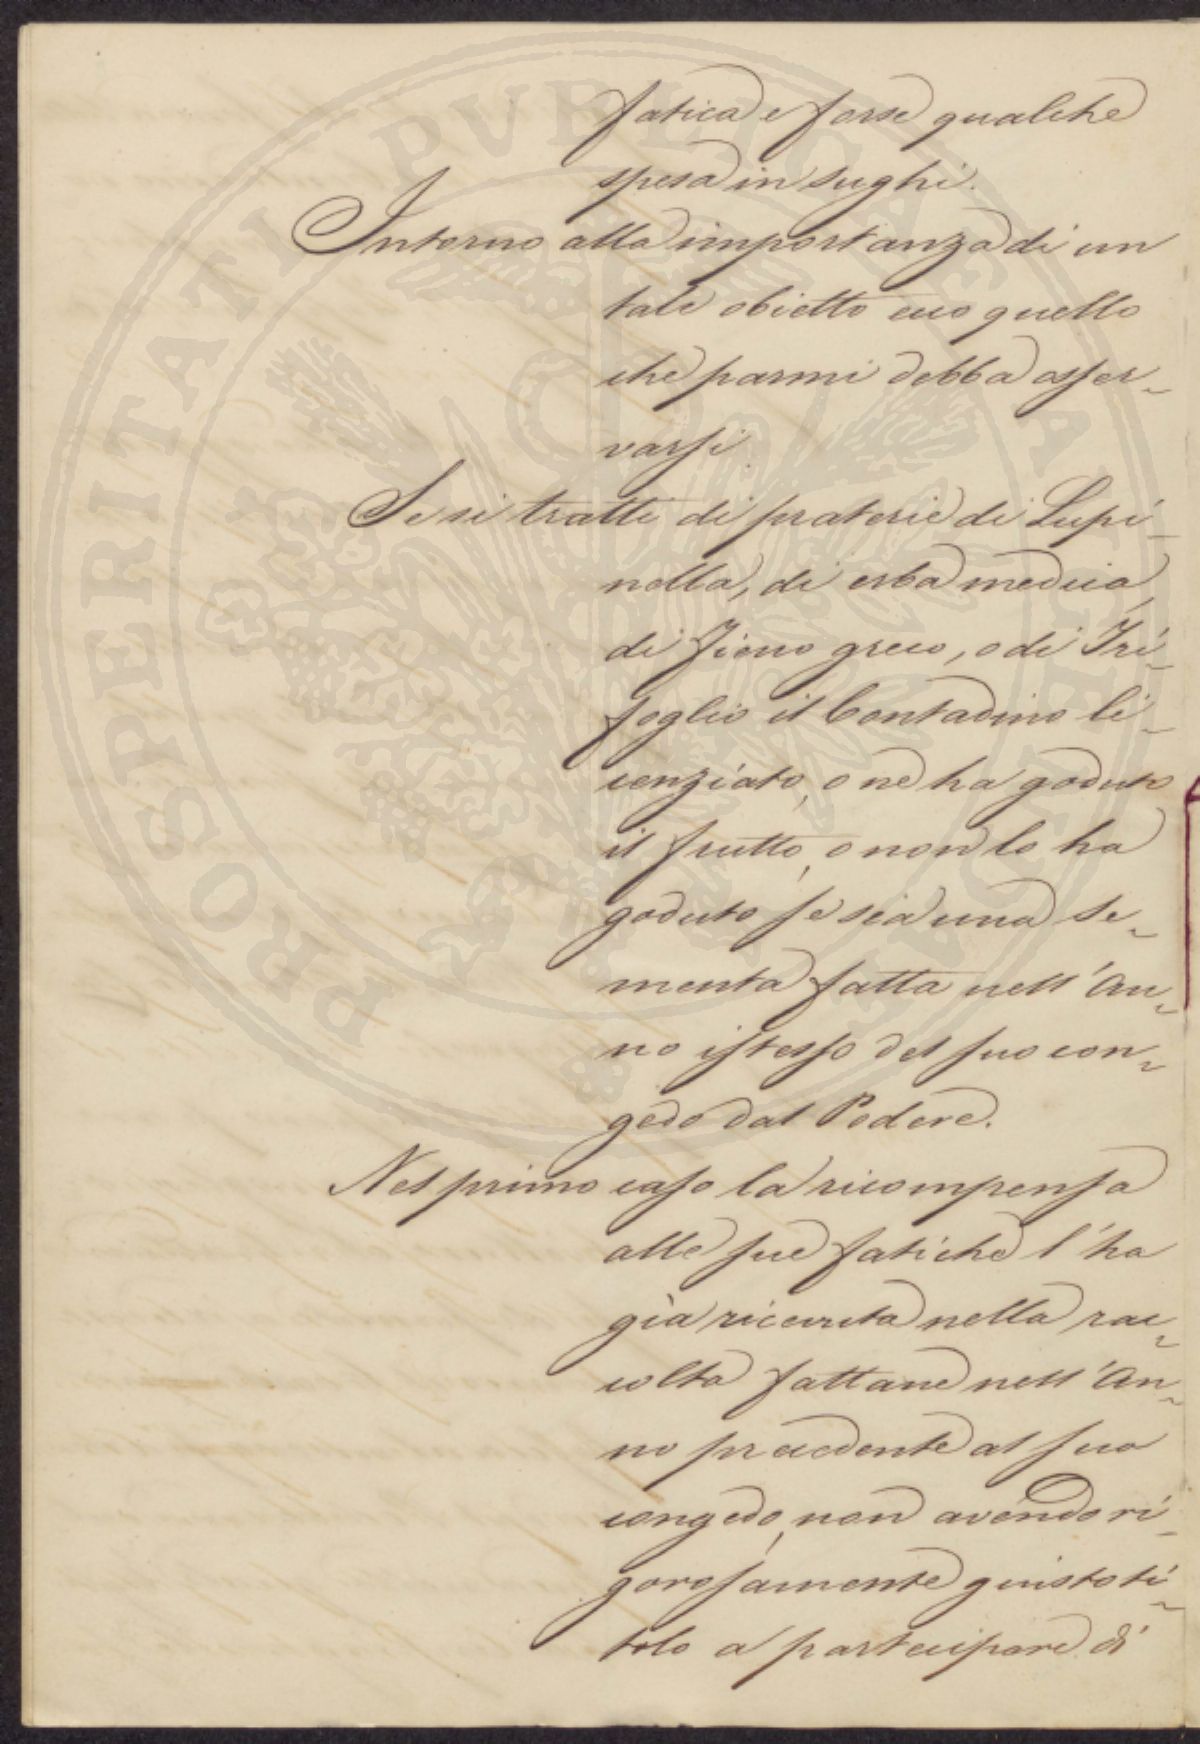 fatica e forse qualche
spesa in sughi.
Intorno alla importanza di un
tale obietto ecco quello
che parmi debba osser-
varsi.
Se si tratti di praterie di Lupi-
nella, di erba medica,
di Fieno greco, o di Tri-
foglio il Contadino li-
cenziato, o ne ha goduto
il frutto, o non lo ha
goduto se sia una se-
menta fatta nell'An-
no istesso del suo con-
gedo dal Podere.
Nel primo caso la ricompensa
alle sue fatiche l'ha
già ricevuta nella rac-
colta fattane nell'An-
no precedente al suo
congedo, non avendo ri-
gorosamente giusto ti-
tolo a partecipare di
PROSPERITATI PUBLICAE AUGENDAE